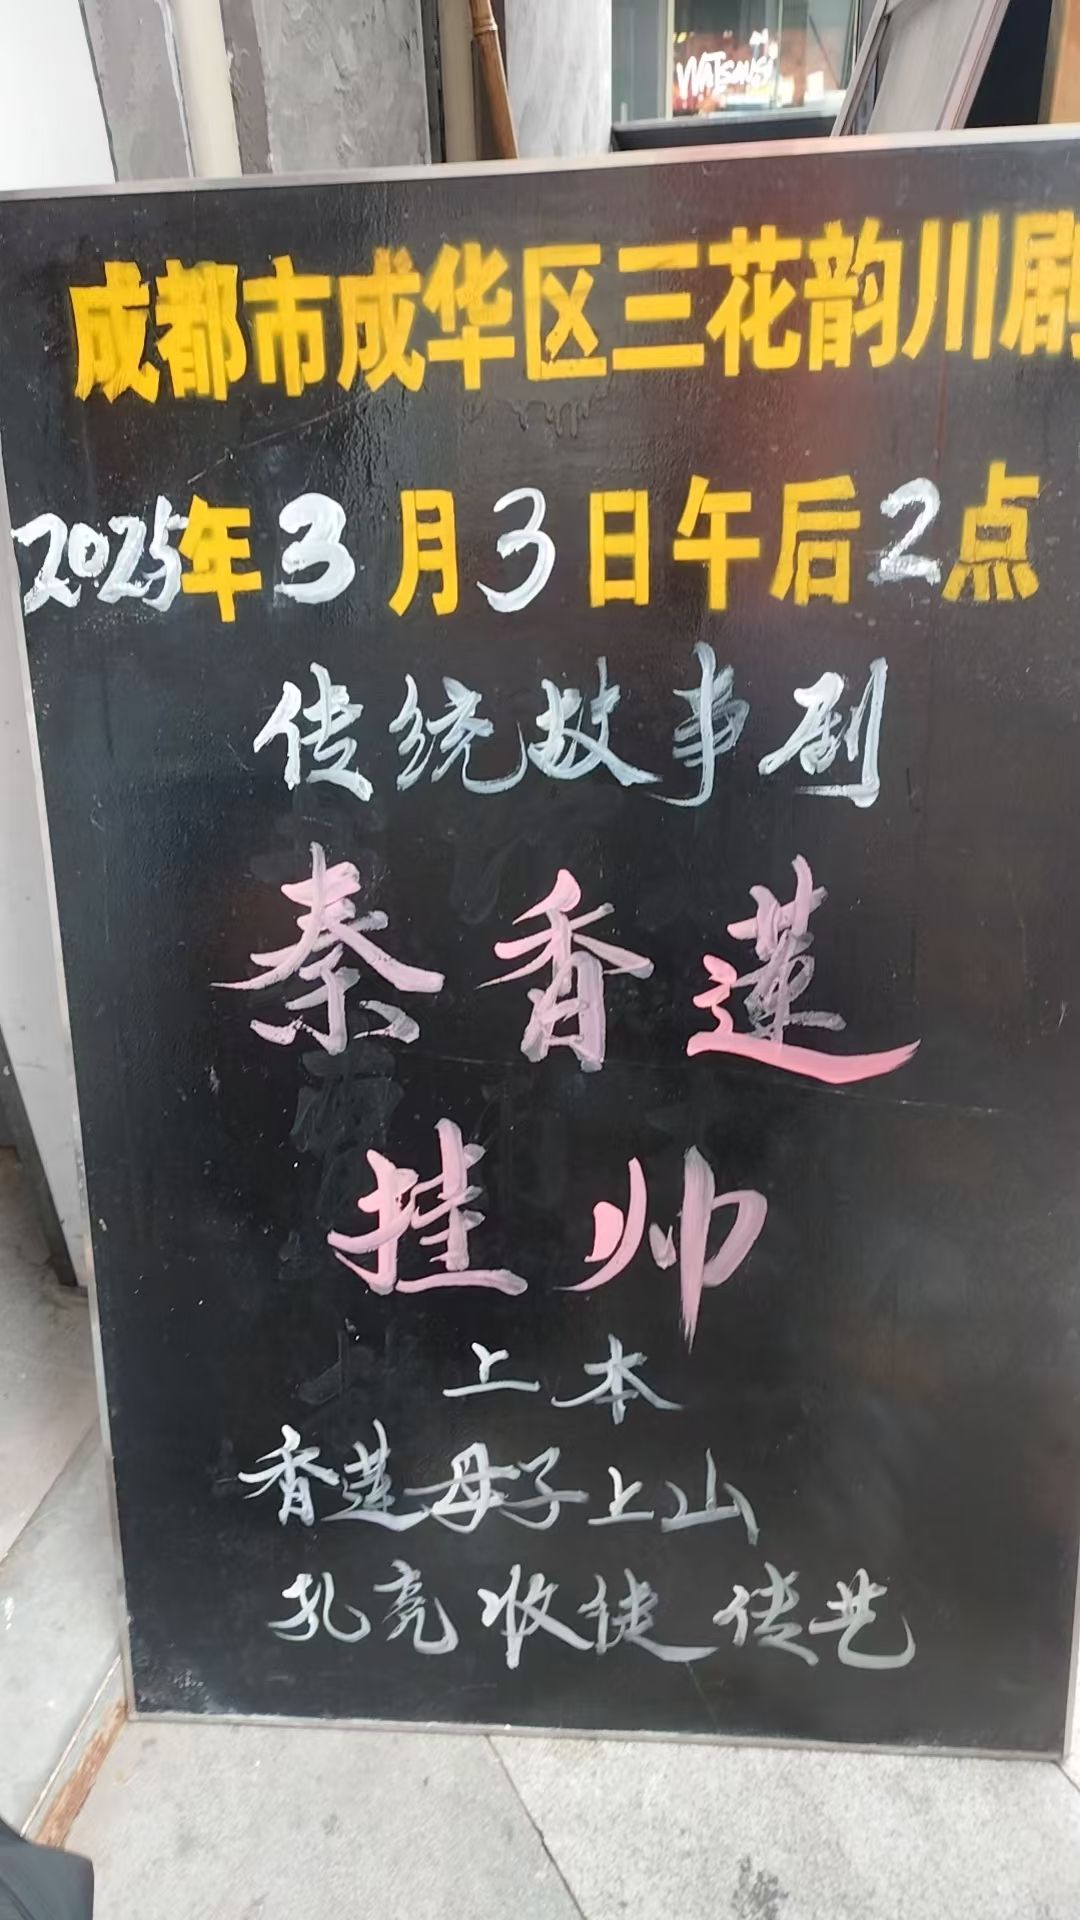 WATSONS
成都市成华区三花韵川剧
2025年3月3日午后2点
传统故事剧
秦香莲
挂帅
上本
香莲母子上山
孔亮收徒传艺